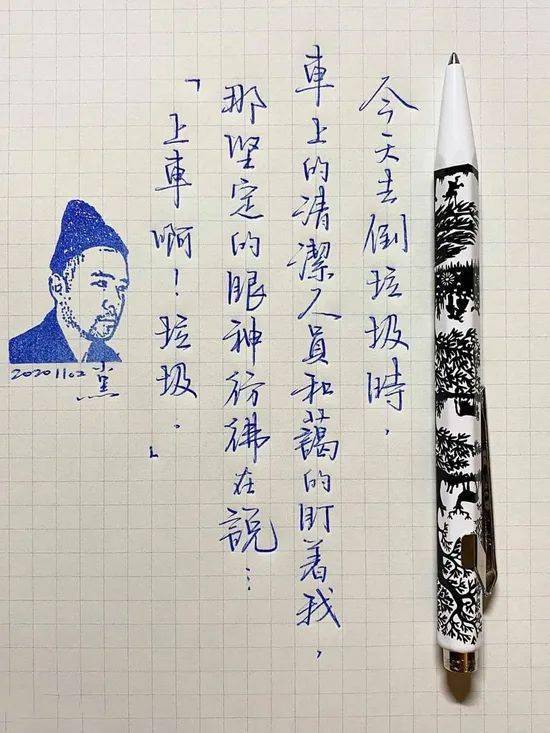 今天去倒垃圾時，
車上的清潔人員和藹的盯着我，
那堅定的眼神彷彿在說…
「上車啊！垃圾．」
20201102
黨